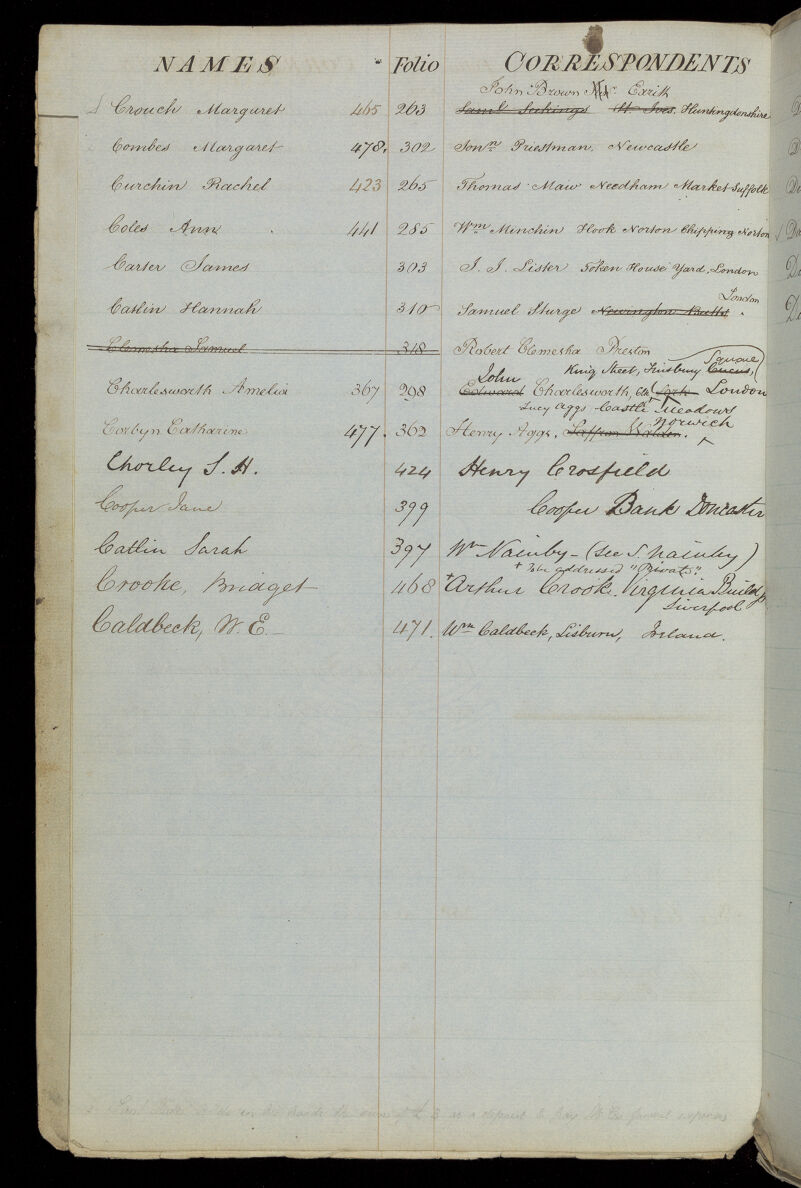 NAMES Folio CORRESPONDENTS
John Brown
Crouch Margaret 465 263 Saml Jekings St Ives, Huntingdonshire
Combes Margaret 478. 302 Jonn Priestman. Newcastle
Curchin Rachel 423 265 Thomas Maw Needham Market Suffolk
Coles Ann 441 285 Wm Minchin Hook Norton Chipping Norton
Carter James 303 J. J. Lister Token House Yard, London
London
Catlin Hannah 310 Samuel Sturge Newington Butts.
Clemesha Samuel 318 Robert Clemesha Preston
King Street, Finsbury Circus, Square
John
Charlesworth Amelia 367 298 Edward Charlesworth, London
Lucy Aggs Castle Meadows
Norwich
Corbyn Catharine 477. 362 Henry Aggs, Saffron Walden.
Chorley S. H. 424 Henry Crosfield
Cooper Jane 399 Cooper Bank Doncaster
Catlin Sarah 397 Wm Nainby - (see S. Nainby)
+ To be addressed "Private".
Crooke, Bridget 468 +Arthur Crook. Virginia Buildgs
Liverpool
Caldbeck, W. E. 471. Wm Caldbeck, Lisburn, Ireland.